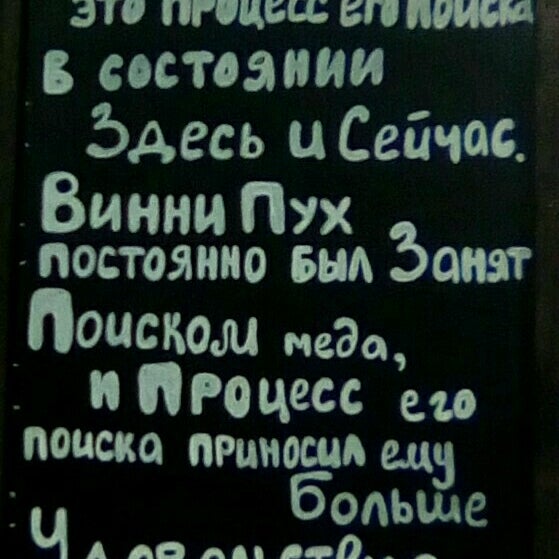 это процесс его поиска
в состоянии
Здесь и Сейчас.
Винни Пух
постоянно был Занят
Поиском меда,
и Процесс его
поиска приносил ему
больше
Удовольствие